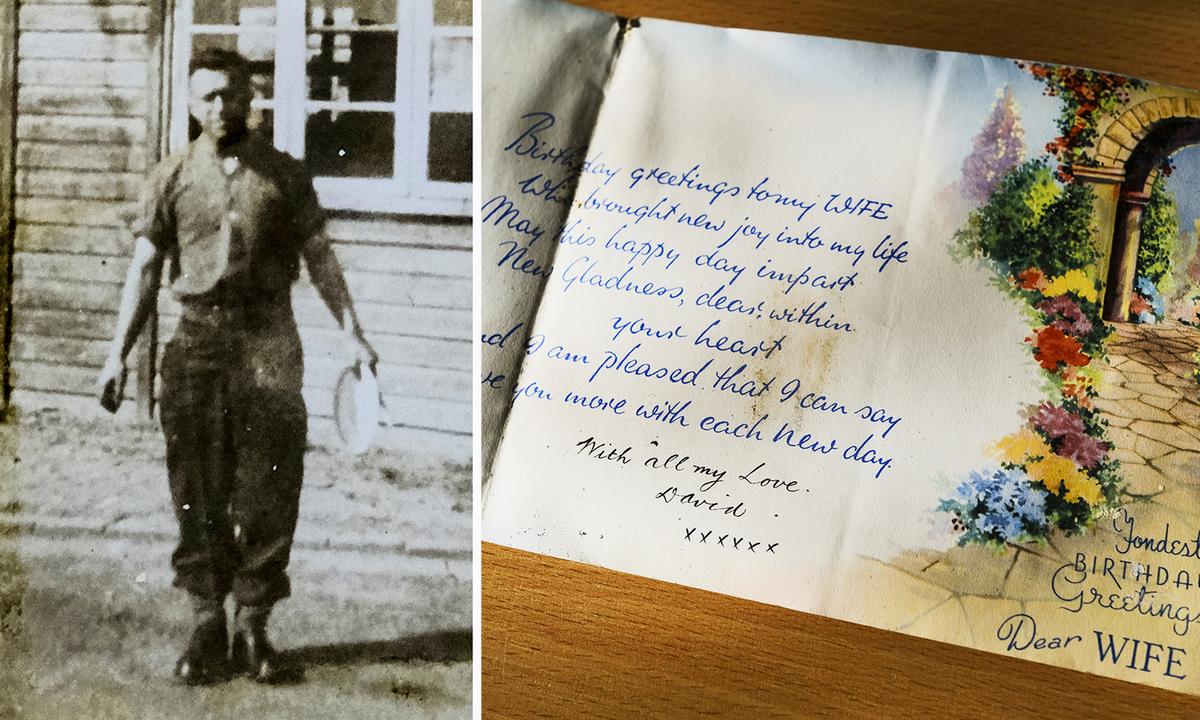 Birthday greetings to my WIFE
Who brought new joy into my life
May this happy day impart
New Gladness, dear, within
your heart
I am pleased that I can say
you more with each new day.
With all my Love.
David.
xxxxxx
Fondest
BIRTHDA
Greetings
Dear WIFE